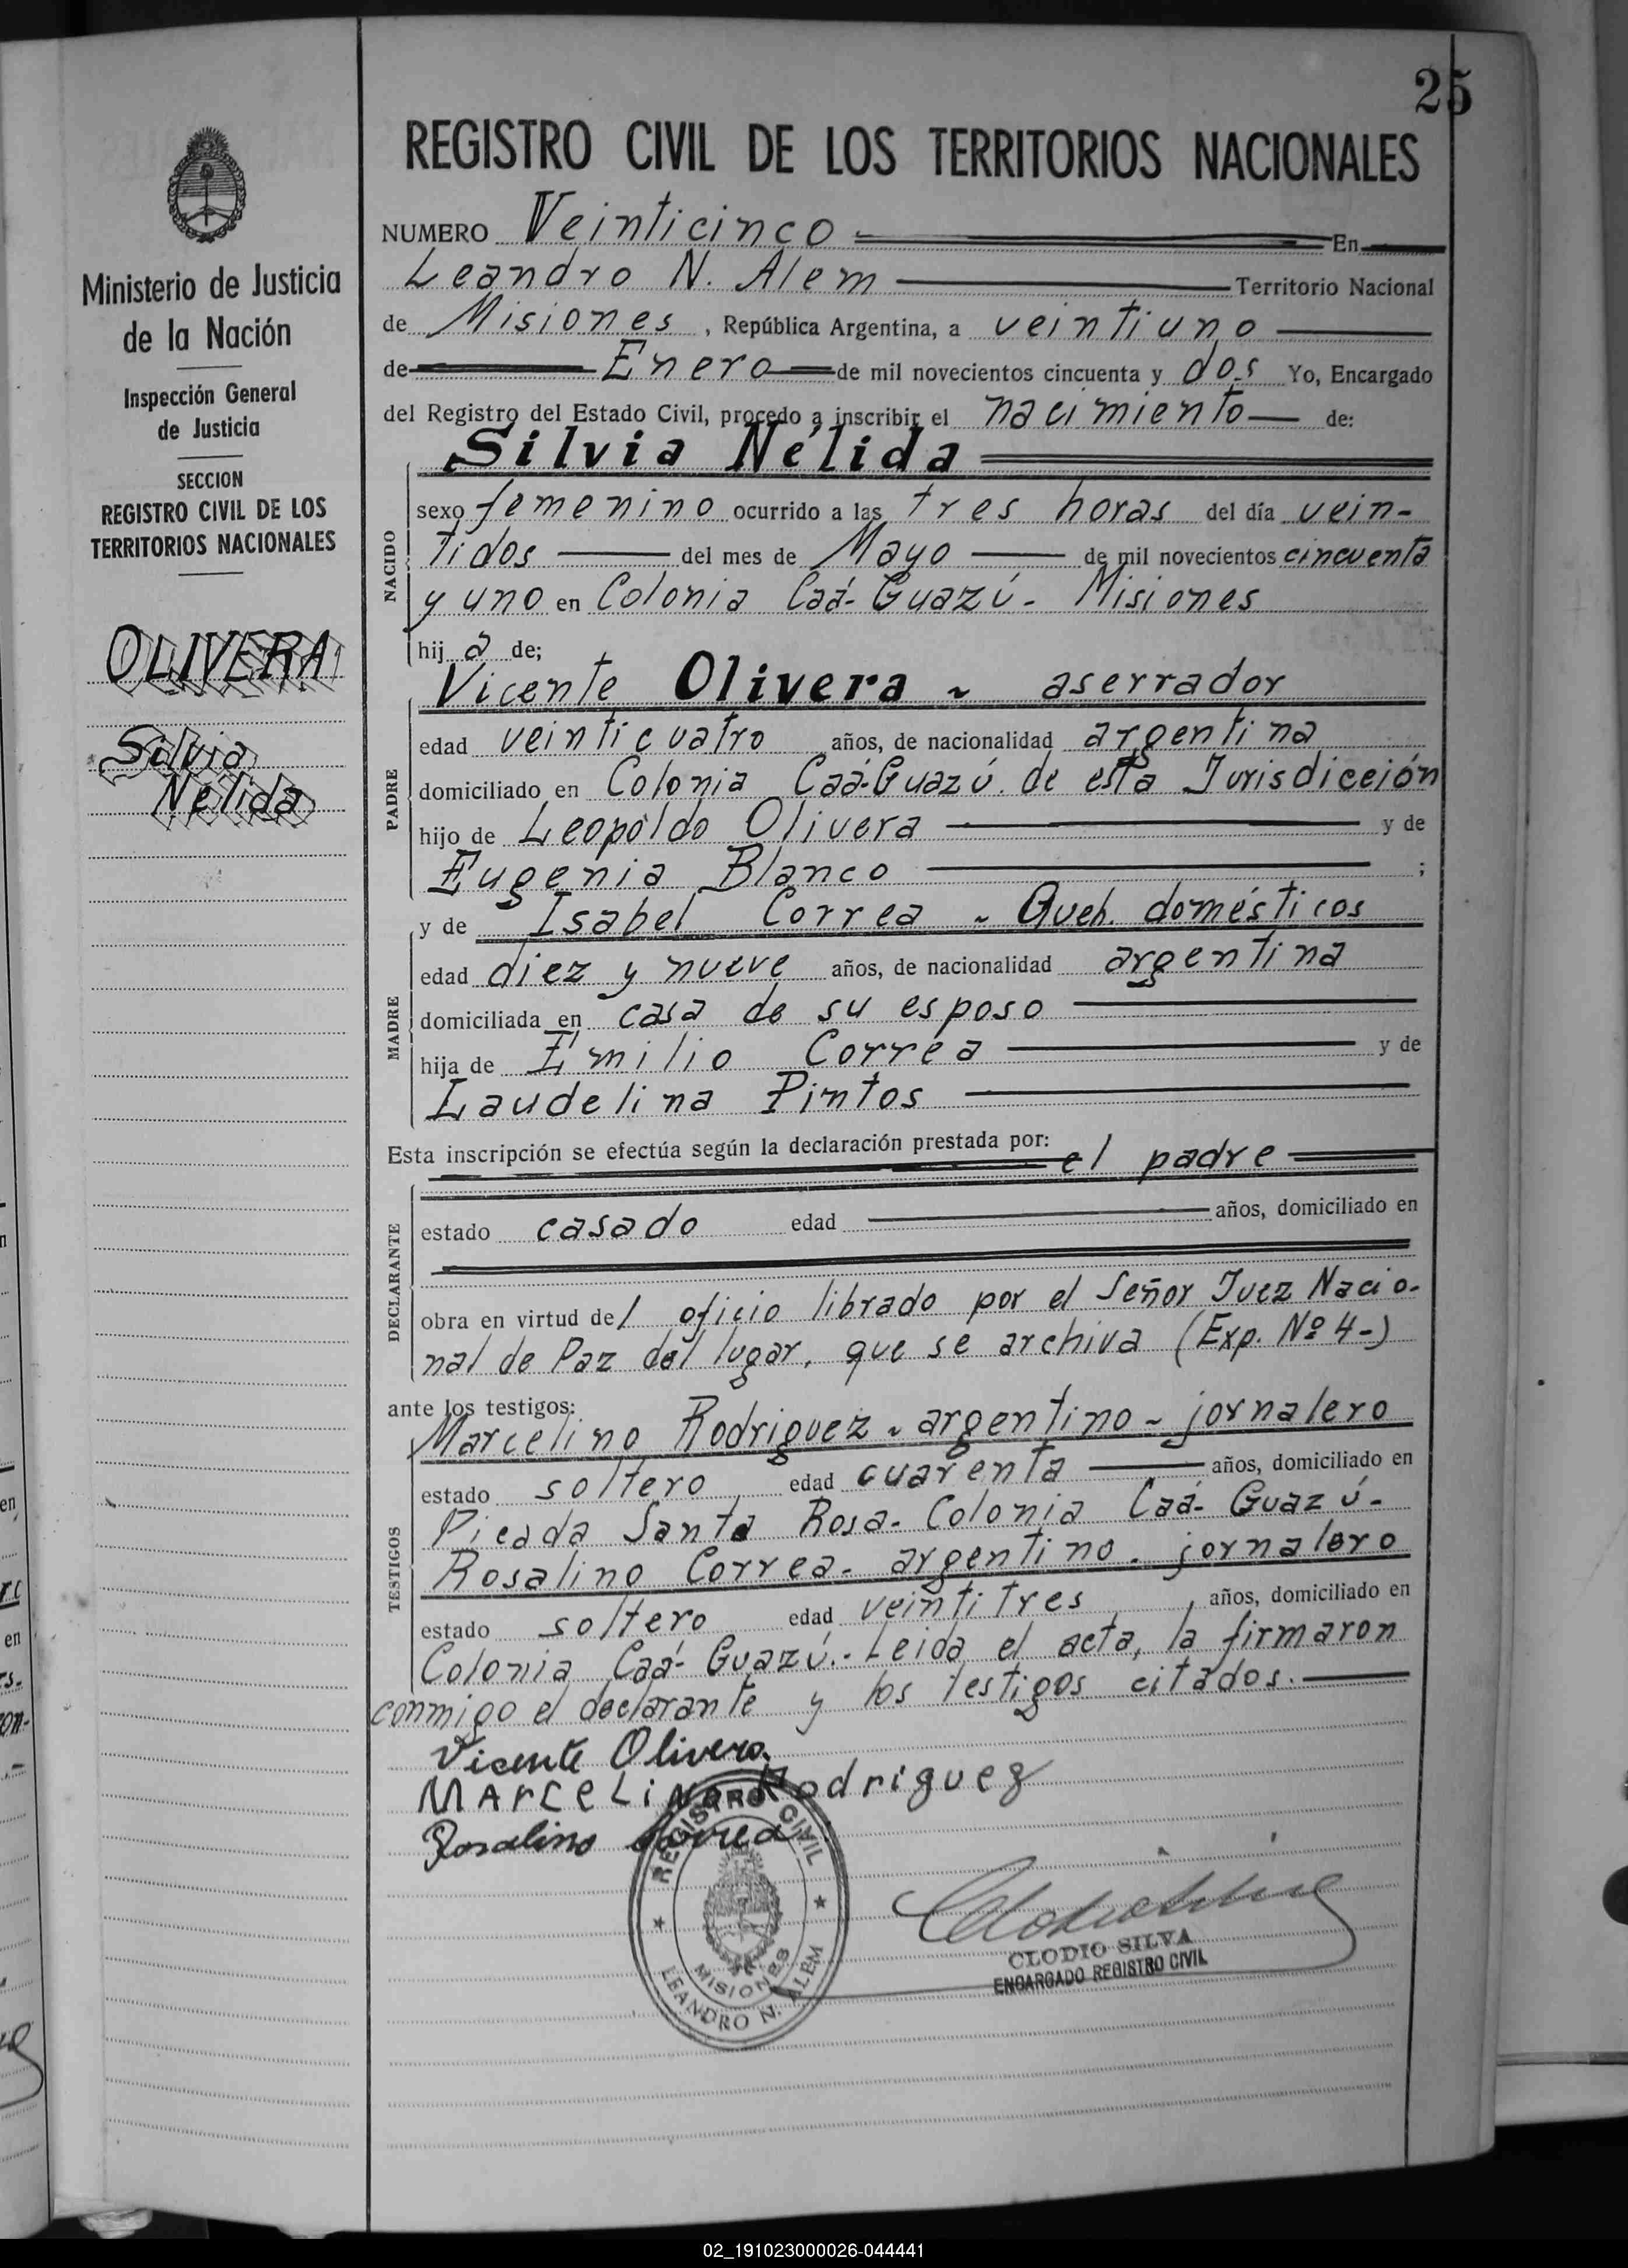 25
REGISTRO CIVIL DE LOS TERRITORIOS NACIONALES
Ministerio de Justicia
de la Nación
Inspección General
de Justicia
SECCION
REGISTRO CIVIL DE LOS
TERRITORIOS NACIONALES
OLIVERA
Silvia
Nélida
NUMERO Veinticinco En
Leandro N. Alem Territorio Nacional
de Misiones, República Argentina, a veintiuno
de Enero de mil novecientos cincuenta y dos Yo, Encargado
del Registro del Estado Civil, procedo a inscribir el nacimiento de:
Silvia Nélida
NACIDO
sexo femenino ocurrido a las tres horas del día vein-
tidos del mes de Mayo de mil novecientos cincuenta
y uno en Colonia Caá-Guazú- Misiones
hija de;
PADRE
Vicente Olivera ~ aserrador
edad veinticuatro años, de nacionalidad argentina
domiciliado en Colonia Caá-Guazú. de esta Jurisdicción
hijo de Leopoldo Olivera y de
Eugenia Blanco ;
MADRE
y de Isabel Correa ~ Queh. domésticos
edad diez y nueve años, de nacionalidad argentina
domiciliada en casa de su esposo
hija de Emilio Corrêa y de
Laudelina Pintos
Esta inscripción se efectúa según la declaración prestada por: el padre
DECLARANTE
estado casado edad años, domiciliado en
obra en virtud del oficio librado por el Señor Juez Nacio-
nal de Paz del lugar, que se archiva (Exp. Nº 4-)
ante los testigos:
TESTIGOS
Marcelino Rodriguez ~ argentino ~ jornalero
estado soltero edad cuarenta años, domiciliado en
Picada Santa Rosa- Colonia Caá- Guazú-
Rosalino Correa- argentino- jornalero
estado soltero edad veintitres, años, domiciliado en
Colonia Caá-Guazú.- Leida el acta, la firmaron
conmigo el declarante y los testigos citados.-
Vicente Olivera.
MArceLino Rodriguez
Rosalino Correa
REGISTRO CIVIL
MISIONES
LEANDRO N. ALEM
CLODIO SILVA
ENCARGADO REGISTRO CIVIL
02_191023000026-044441